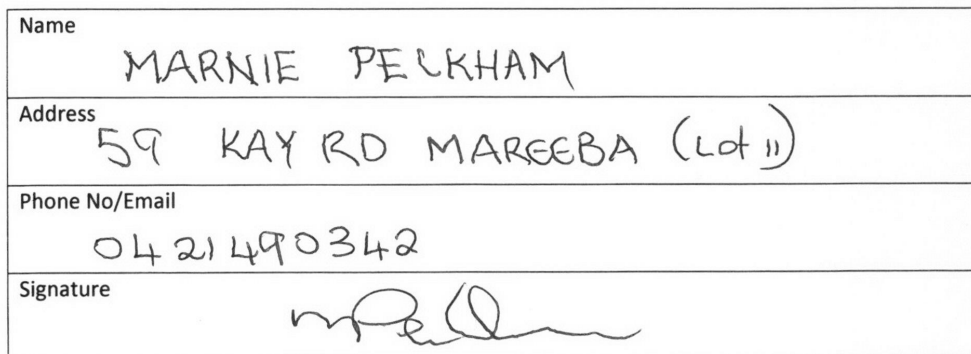 Name
MARNIE PECKHAM
Address
59 KAY RD MAREEBA (Lot 11)
Phone No/Email
0421490342
Signature